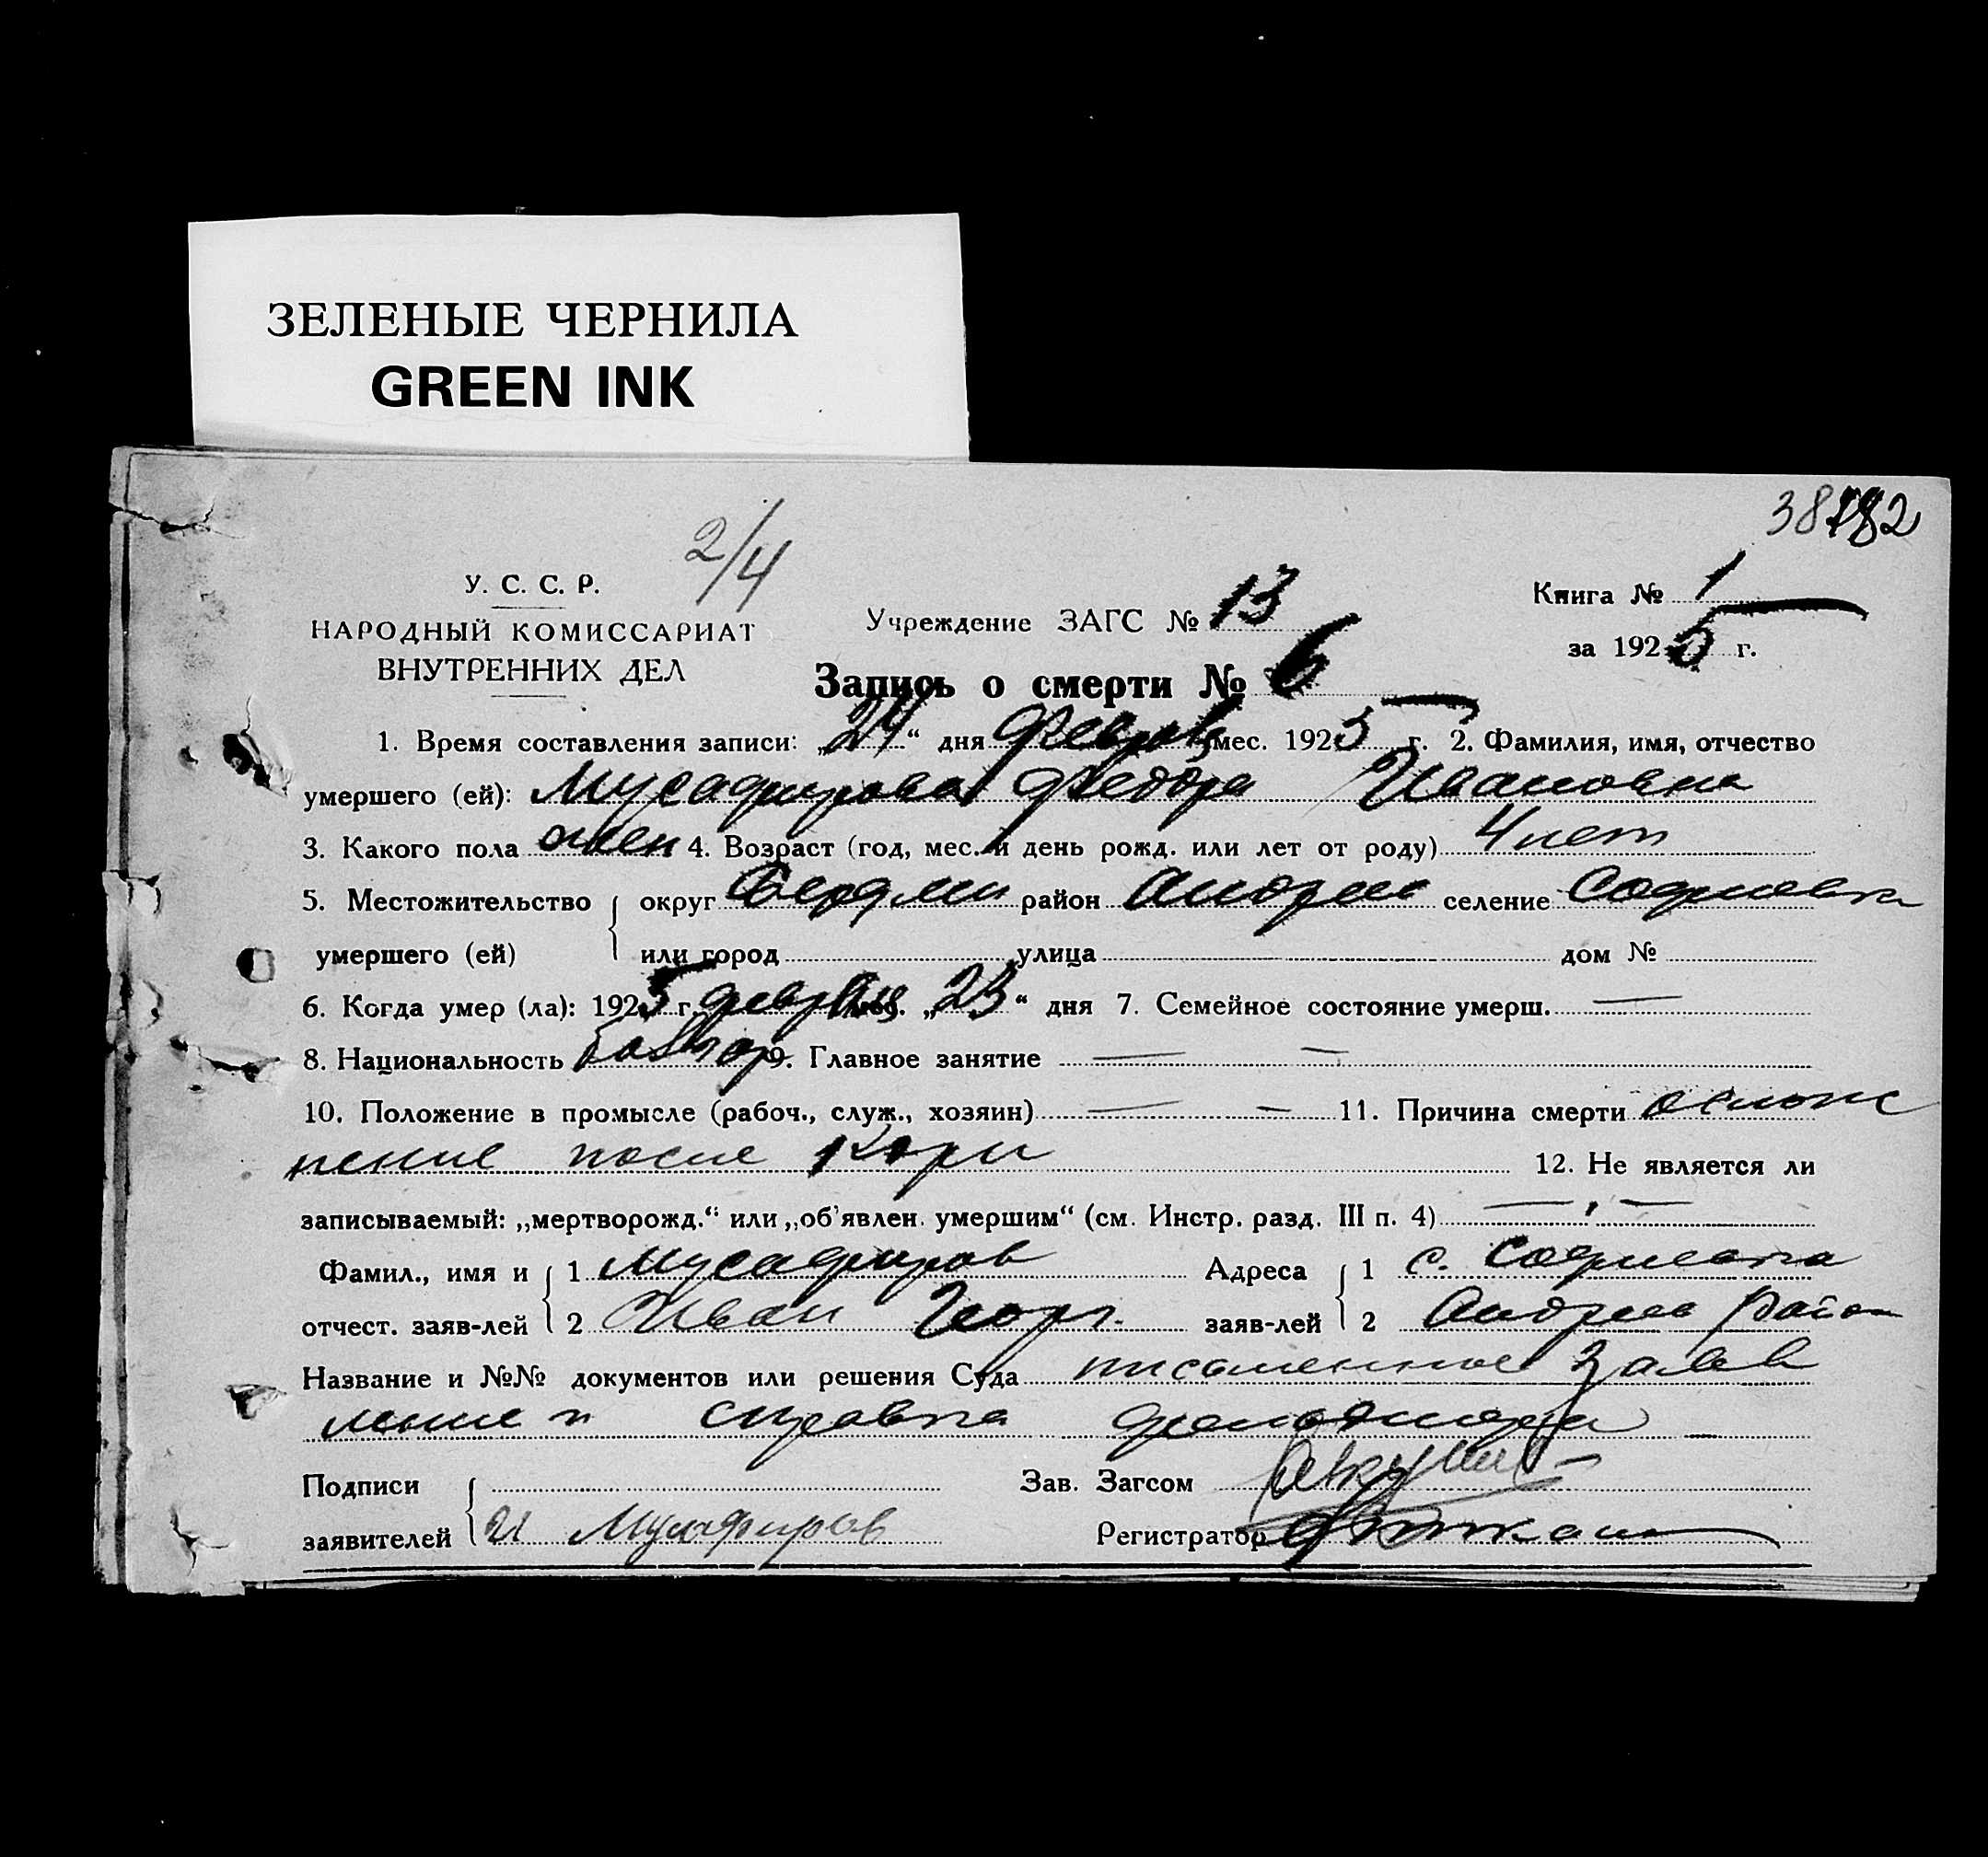 ЗЕЛЕНЫЕ ЧЕРНИЛА
GREEN INK
38 182
2/4
У. С. С. Р.
НАРОДНЫЙ КОМИССАРИАТ
ВНУТРЕННИХ ДЕЛ
Учреждение ЗАГС № 13
Книга № 1
за 1925 г.
Запись о смерти № 6
1. Время составления записи: „24“ дня февраля мес. 1925 г. 2. Фамилия, имя, отчество
умершего (ей): Мусафирова Федора Ивановна
3. Какого пола жен 4. Возраст (год, мес. и день рожд. или лет от роду) 4 лет
5. Местожительство округ Бердян район Андреев селение Софиевка
умершего (ей) или город улица дом №
6. Когда умер (ла): 1925 г. февраля мес. „23“ дня 7. Семейное состояние умерш. —
8. Национальность болгар 9. Главное занятие — —
10. Положение в промысле (рабоч., служ., хозяин) — — 11. Причина смерти ослож
нение после кори 12. Не является ли
записываемый: „мертворожд.“ или „об'явлен. умершим“ (см. Инстр. разд. III п. 4) — —
Фамил., имя и 1 Мусафиров Адреса 1 с. Софиевка
отчест. заяв-лей 2 Иван Георг. заяв-лей 2 Андреев район
Название и №№ документов или решения Суда письменное заяв
ление и справка
Подписи Зав. Загсом
заявителей И Мусафиров Регистратор